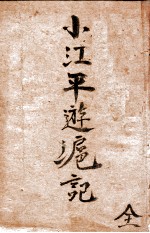 小江平遊滬記
全